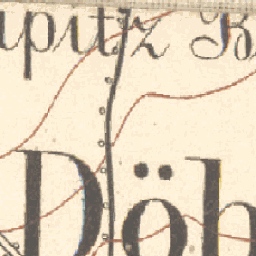 upitz B
Döb